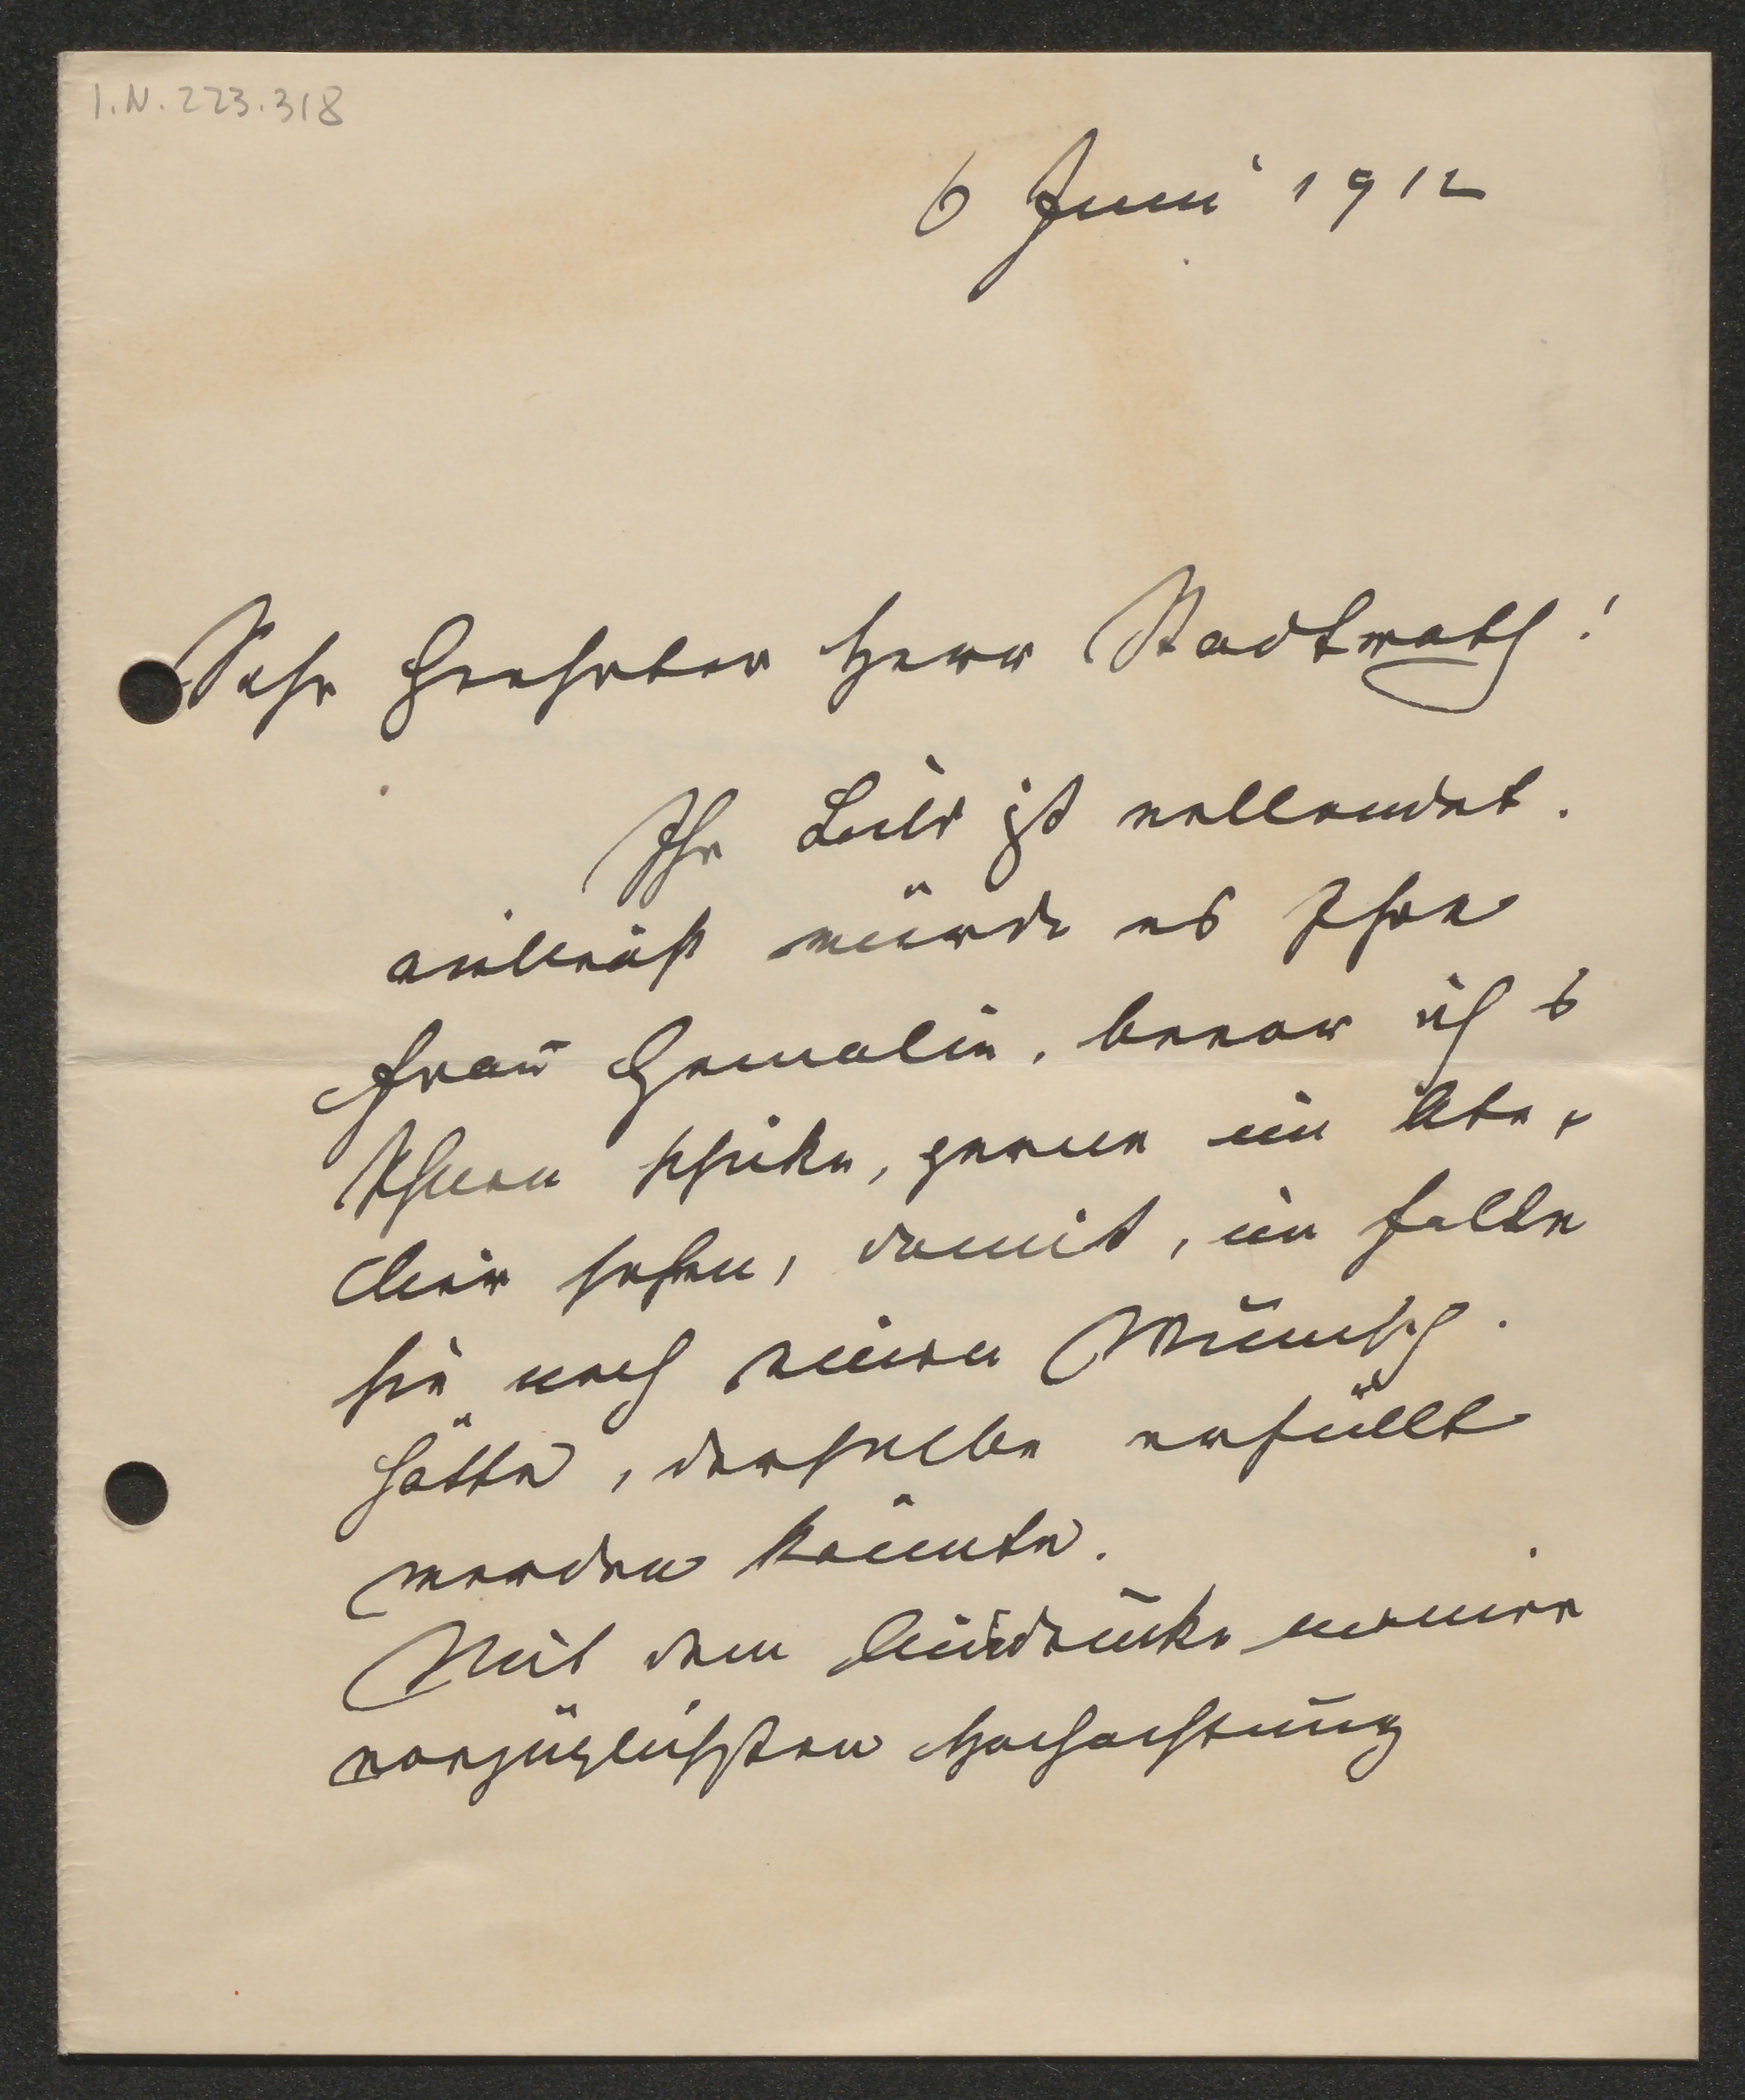 I.N. 223.318
6 Juni 1912
Sehr Geehrter Herr Stadtrath!
Ihr Bild ist vollendet.
vielleicht würde es Ihre
Frau Gemalin, bevor ich s
Ihnen schicke, gerne im Ate-
lier sehen, damit, im falle
sie noch einen Wunsch
hätte, derselbe erfüllt
werden könnte.
Mit dem Ausdrucke meiner
vorzüglichsten Hochachtung